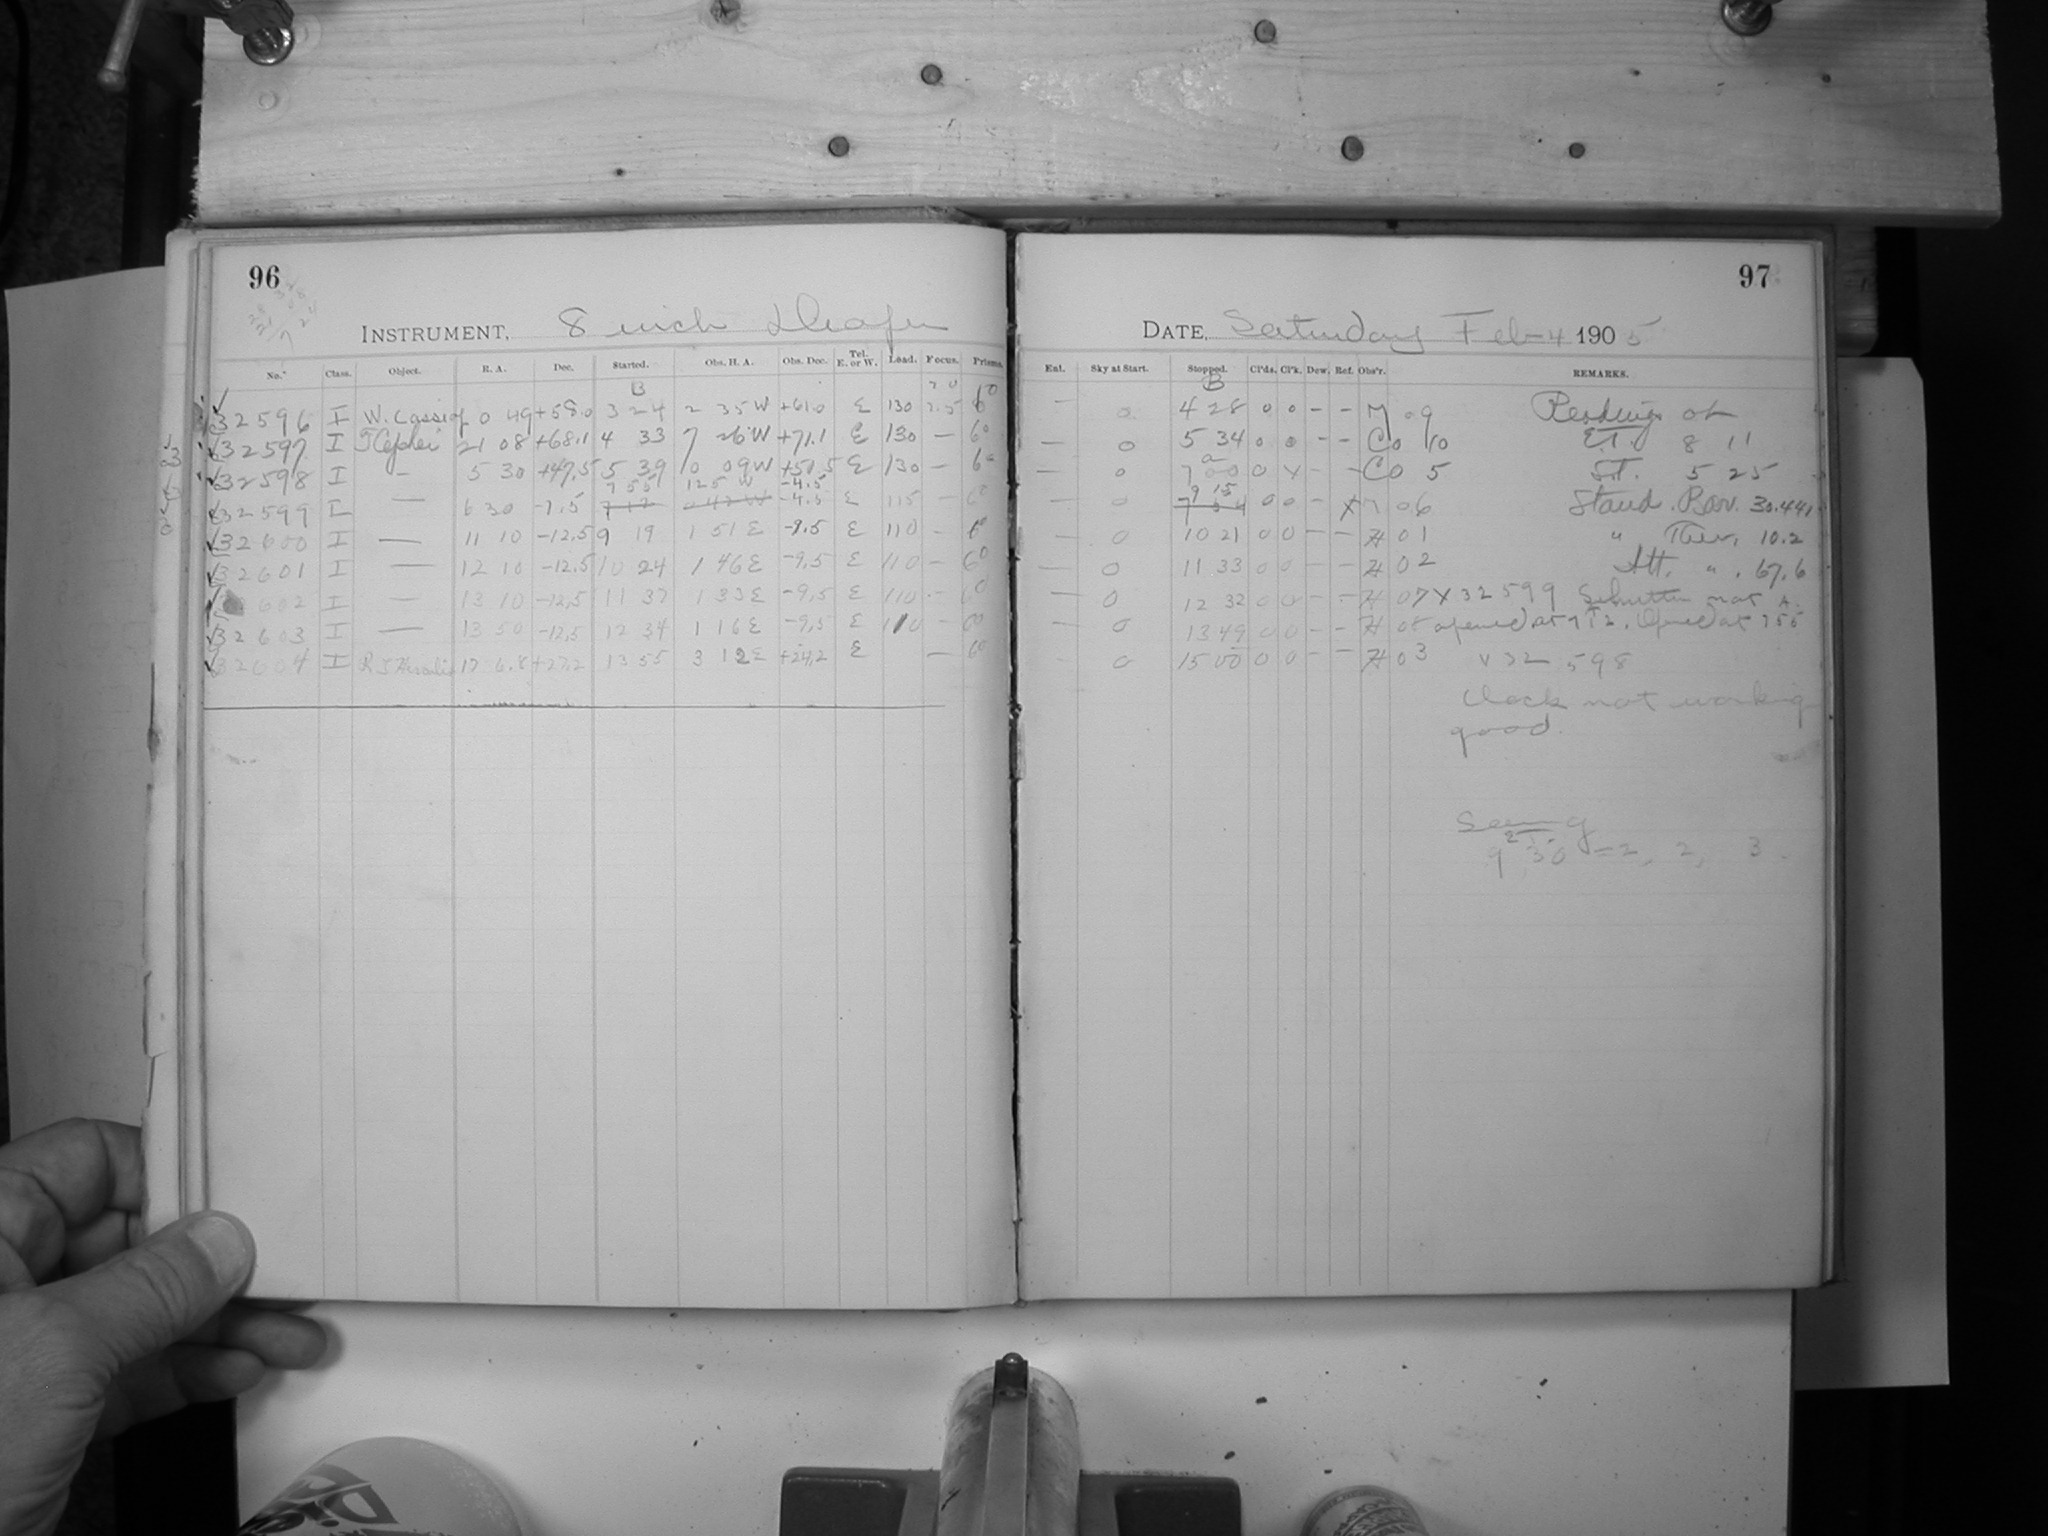 96
INSTRUMENT, 8 inch Draper
No. Class. Object. R. A. Dec. Started. Obs. H. A. Obs. Dec. Tel. E. or W. Load. Focus. Prisms.
B 2.0
32596 I W. Cassiop 0 49 +58.0 3 24 2 35 W +61.0 E 130 2.5 6°
32597 I T Cephei 21 08 +68.1 4 33 7 26 W +71.1 E 130 — 6°
32598 I — 5 30 +47.5 5 39 0 09 W +51.5 E 130 — 6°
7 55 1 25 W -4.5
32599 I — 6 30 -7.5 7 12 0 42 W -4.5 E 115 — 6°
32600 I — 11 10 -12.5 9 19 1 51 E -9.5 E 110 — 6°
32601 I — 12 10 -12.5 10 24 1 46 E -9.5 E 110 — 6°
602 I — 13 10 -12.5 11 37 1 33 E -9.5 E 110 — 6°
32603 I — 13 50 -12.5 12 34 1 16 E -9.5 E 110 — 6°
32604 I 17 6.8 +27.2 13 55 3 12 E +24.2 E — 6°
97
DATE, Saturday Feb 4 1905
Ent. Sky at Start. Stopped. Cl'ds. Cl'k. Dew. Ref. Obs'r. REMARKS.
B
— 0 4 28 0 0 — — M 09 Readings at
— 0 5 34 0 0 — — Co 10 E.T. 8 11
— 0 7 00 0 X — — Co 5 S.T. 5 25
9 15
— 0 7 54 0 0 — X M 06 Stand. Bar. 30.441
— 0 10 21 0 0 — — H 01 " Ther. 10.2
— 0 11 33 0 0 — — H 02 Att. " . 67.6
— 0 12 32 0 0 — — H 07 X 32599 Shutter not
— 0 13 49 0 0 — — H 08 opened at 7 12. Opened at 7 55
— 0 15 00 0 0 — — H 03 X 32598
Clock not working
good.
Seeing
9 30 = 2, 2, 3.